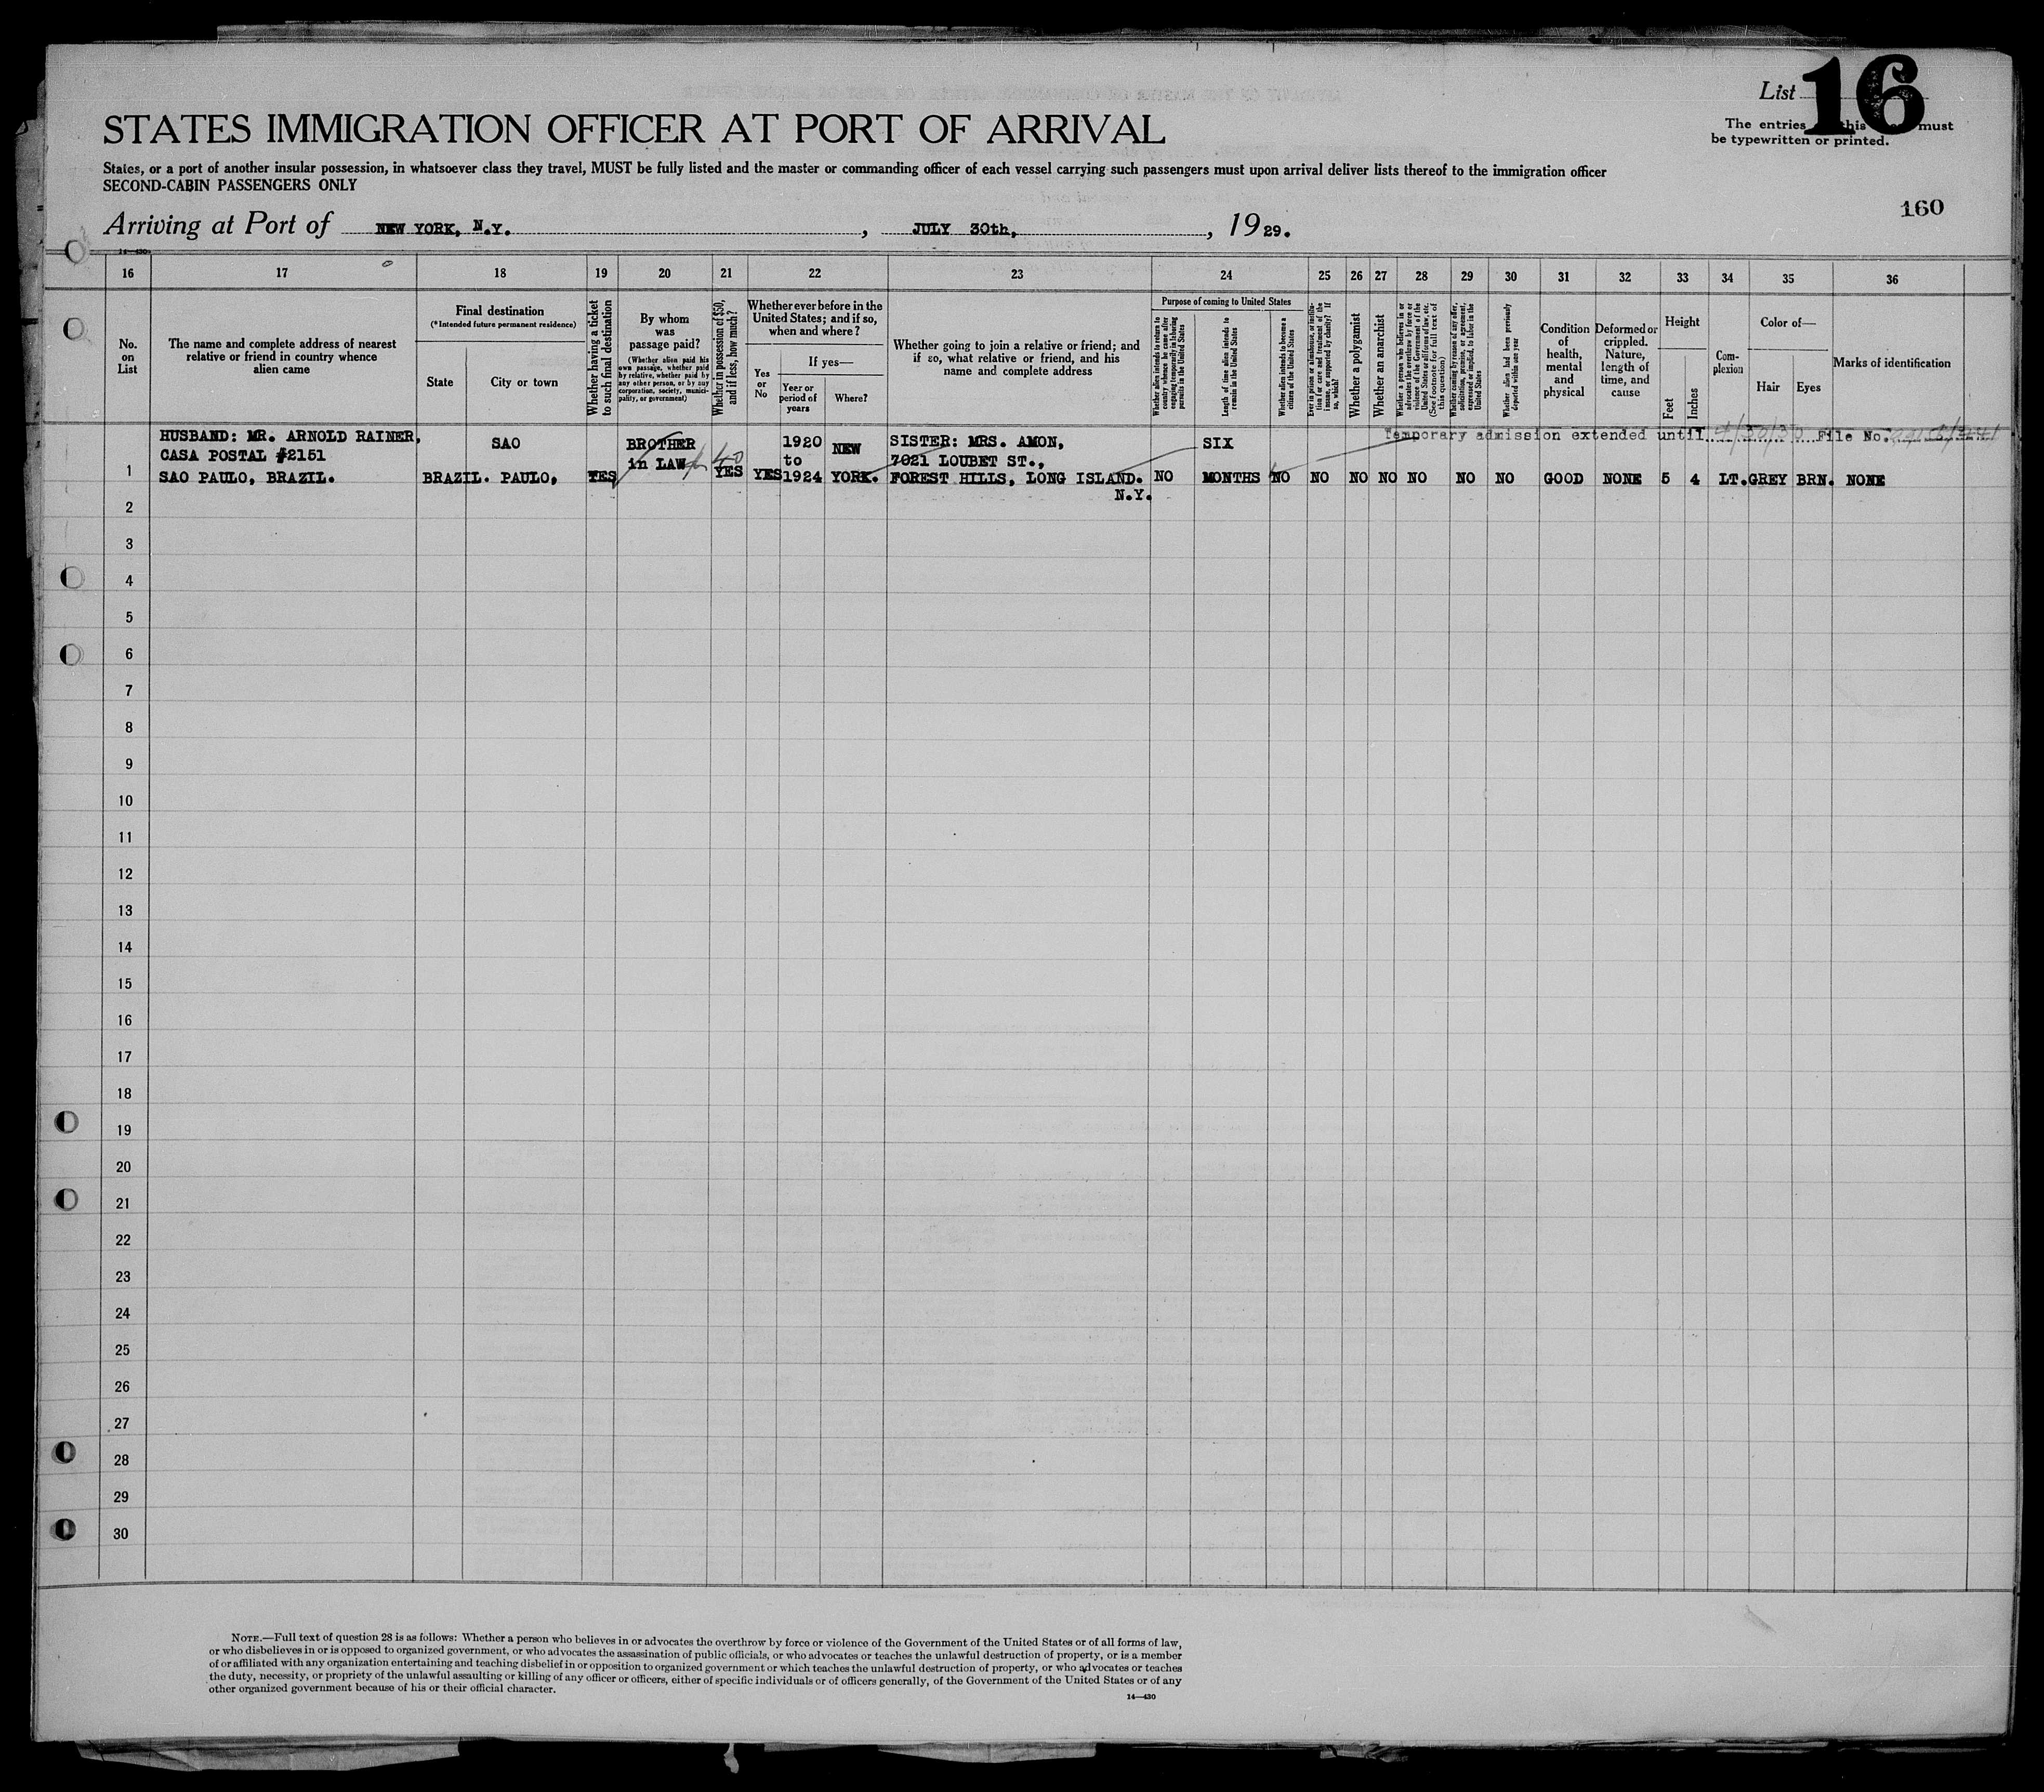 List 16
STATES IMMIGRATION OFFICER AT PORT OF ARRIVAL
The entries this must
be typewritten or printed.
States, or a port of another insular possession, in whatsoever class they travel, MUST be fully listed and the master or commanding officer of each vessel carrying such passengers must upon arrival deliver lists thereof to the immigration officer
SECOND-CABIN PASSENGERS ONLY
160
Arriving at Port of NEW YORK, N.Y. , JULY 30th, , 19 29.
14—430
16 17 18 19 20 21 22 23 24 25 26 27 28 29 30 31 32 33 34 35 36
No.
on
List
The name and complete address of nearest
relative or friend in country whence
alien came
Final destination
(*Intended future permanent residence)
State
City or town
Whether having a ticket
to such final destination
By whom
was
passage paid?
(Whether alien paid his
own passage, whether paid
by relative, whether paid by
any other person, or by any
corporation, society, munici-
pality, or government)
Whether in possession of $50,
and if less, how much?
Whether ever before in the
United States; and if so,
when and where?
Yes
or
No
If yes—
Year or
period of
years
Where?
Whether going to join a relative or friend; and
if so, what relative or friend, and his
name and complete address
Purpose of coming to United States
Whether alien intends to return to
country whence he came after
engaging temporarily in laboring
pursuits in the United States
Length of time alien intends to
remain in the United States
Whether alien intends to become a
citizen of the United States
Ever in prison or almshouse, or institu-
tion for care and treatment of the
insane, or supported by charity? If
so, which?
Whether a polygamist
Whether an anarchist
Whether a person who believes in or
advocates the overthrow by force or
violence of the Government of the
United States or all forms of law, etc.
(See footnote for full text of
this question)
Whether coming by reason of any offer,
solicitation, promise, or agreement,
expressed or implied, to labor in the
United States
Whether alien had been previously
deported within one year
Condition
of
health,
mental
and
physical
Deformed or
crippled.
Nature,
length of
time, and
cause
Height
Feet
Inches
Com-
plexion
Color of—
Hair
Eyes
Marks of identification
Temporary admission extended until 4/30/30 File No.
HUSBAND: MR. ARNOLD RAINER, SAO BROTHER 1920 NEW SISTER: MRS. AMON, SIX
CASA POSTAL #2151 in LAW 40 to 7021 LOUBET ST.,
1 SAO PAULO, BRAZIL. BRAZIL. PAULO, YES YES YES 1924 YORK. FOREST HILLS, LONG ISLAND. NO MONTHS NO NO NO NO NO NO NO GOOD NONE 5 4 LT. GREY BRN. NONE
N.Y.
2
3
4
5
6
7
8
9
10
11
12
13
14
15
16
17
18
19
20
21
22
23
24
25
26
27
28
29
30
NOTE.—Full text of question 28 is as follows: Whether a person who believes in or advocates the overthrow by force or violence of the Government of the United States or of all forms of law,
or who disbelieves in or is opposed to organized government, or who advocates the assassination of public officials, or who advocates or teaches the unlawful destruction of property, or is a member
of or affiliated with any organization entertaining and teaching disbelief in or opposition to organized government or which teaches the unlawful destruction of property, or who advocates or teaches
the duty, necessity, or propriety of the unlawful assaulting or killing of any officer or officers, either of specific individuals or of officers generally, of the Government of the United States or of any
other organized government because of his or their official character.
14—430